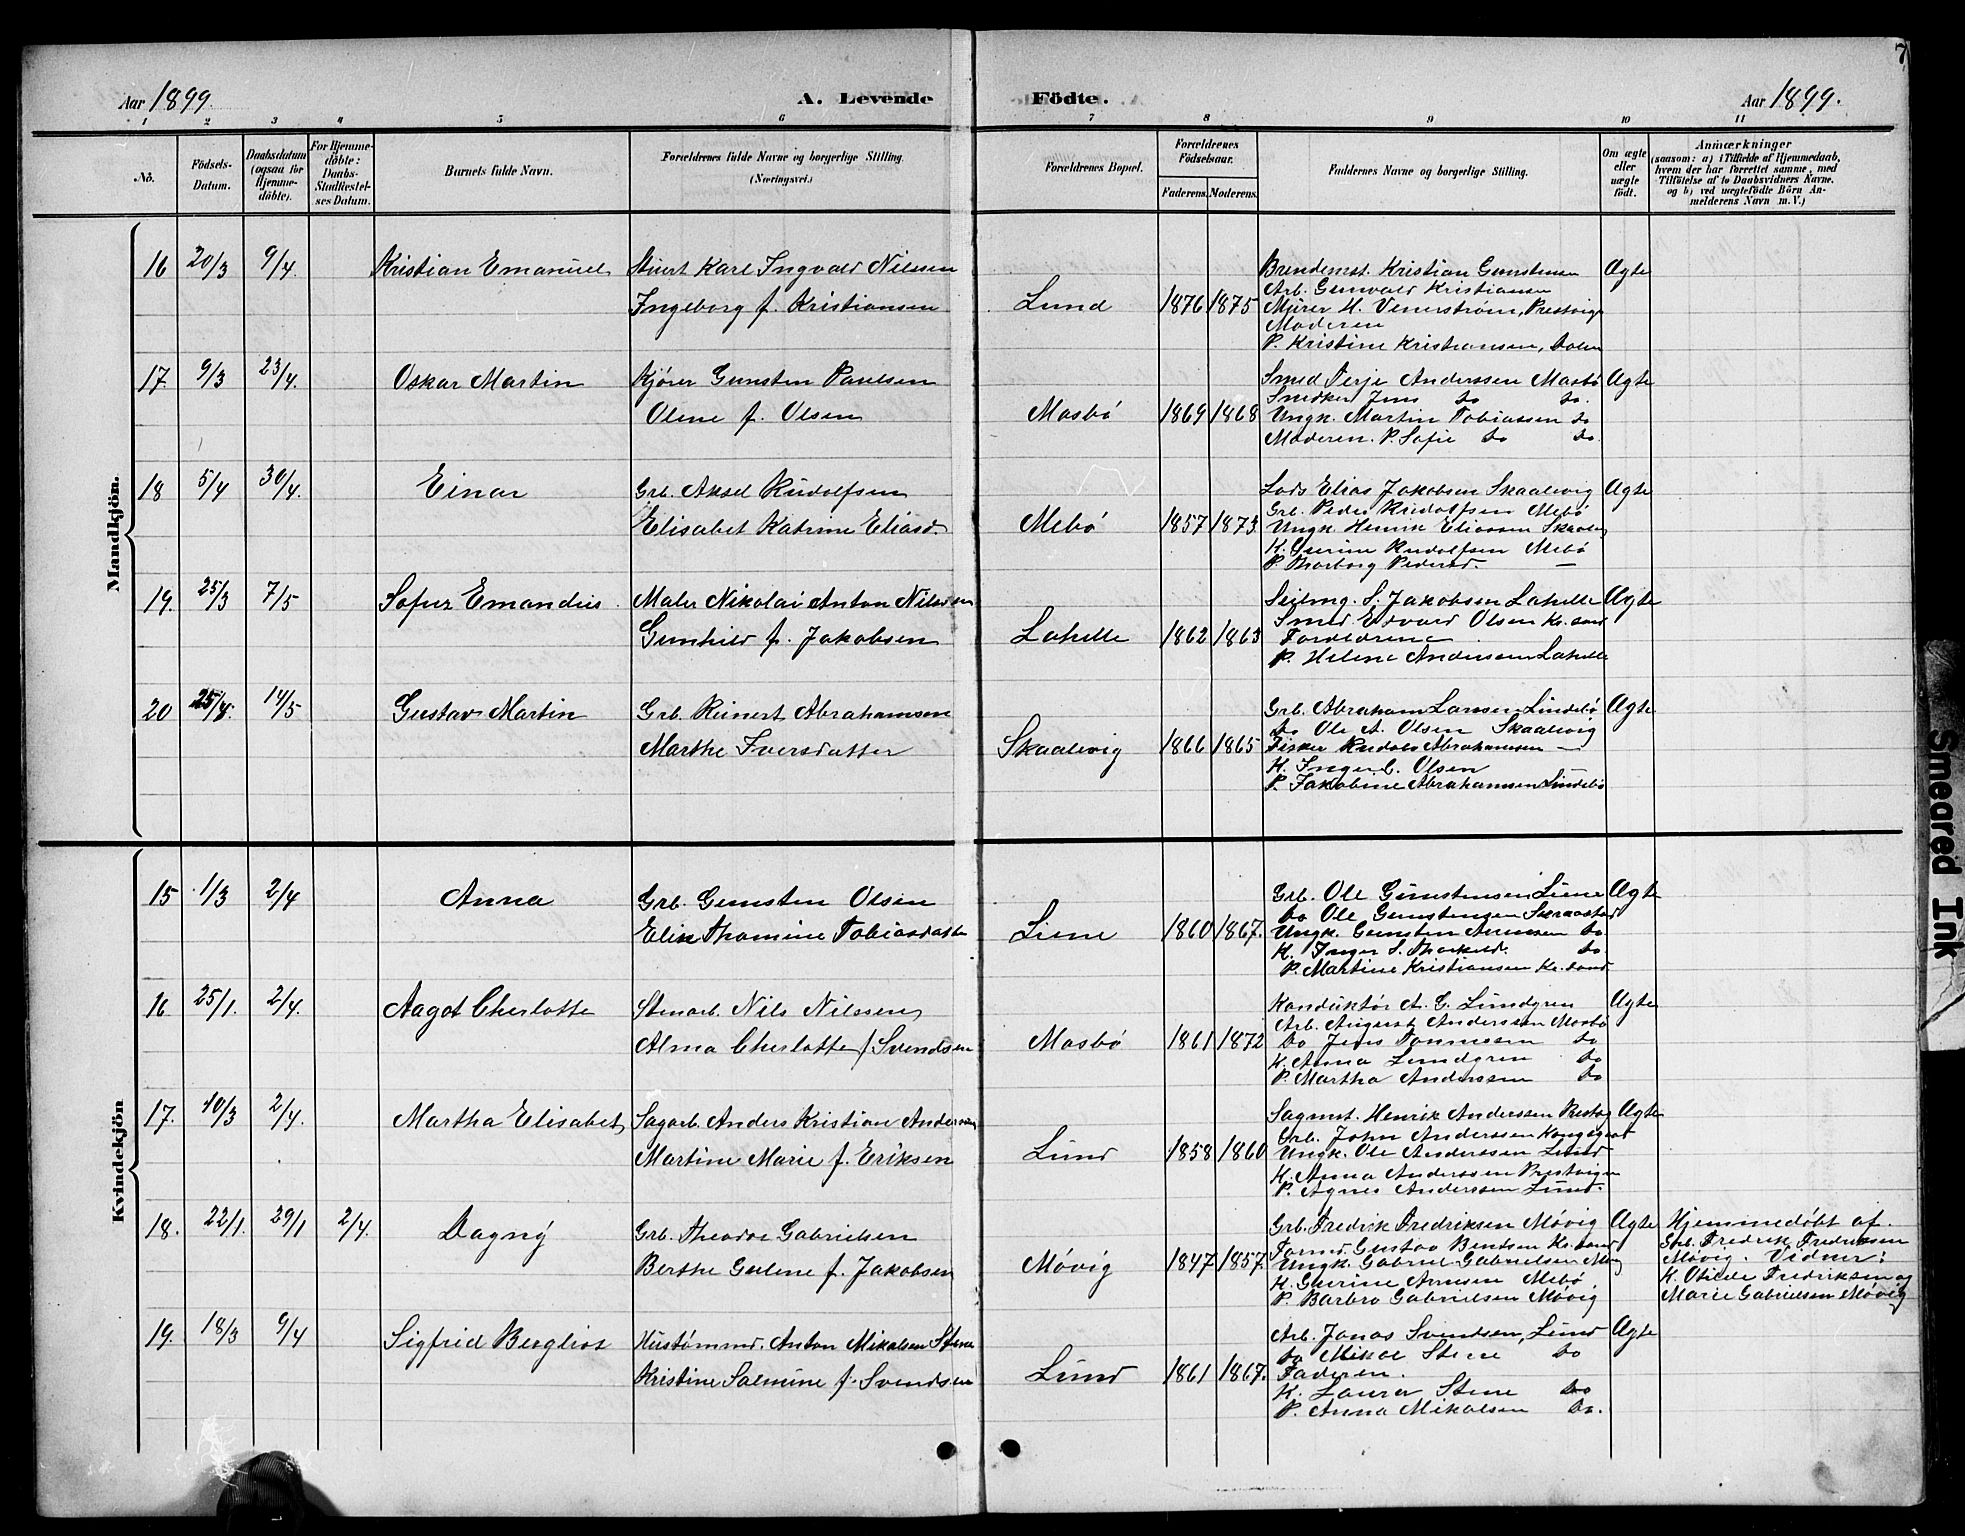 7
Aar 1899.
A. Levende Födte.
Aar 1899.
1 2 3 4 5 6 7 8 9 10 11
No.
Födsels-Datum.
Daabsdatum (ogsaa for Hjemmedöbte).
For Hjemmedöbte: Daabs-Stadfæstelses Datum.
Barnets fulde Navn.
Forældrenes fulde Navne og borgerlige Stilling. (Næringsvei.)
Forældrenes Bopæl.
Forældrenes Födselsaar.
Faderens. Moderens.
Faddernes Navne og borgerlige Stilling.
Om ægte eller uægte födt.
Anmærkninger
(saasom: a) i Tilfælde af Hjemmedaab,
hvem der har forrettet samme, med
Tilföielse af to Daabsvidners Navne.
og b) ved uægtefödte Börn An-
melderens Navn m. V.)
Mandkjön.
16 20/3 9/4. Kristian Emanuel
Stuert Karl Ingvald Nilssen
Ingeborg f. Kristiansen
Lund 1876 1875
Kristian Gunstensen
Arb. Gunvald Kristiansen
Murer H. Venerstrøm, Prestvig
Moderen
P. Kristine Kristiansen,
Ægte
17. 9/3 23/4. Oskar Martin
Kjører Gunsten Paulsen
Olene f. Olsen
Mosbø 1869 1868
Smed Terje Anderssen Mosbø
Snedker Jens do do.
Ungk. Martin Tobiassen do
Moderen. P. Sofie do do.
Ægte
18 5/4 30/4. Einar
Grb. Aksel Rudolfsen
Elisabet Katrine Eliasd.
Mebø 1857 1873
Lods Elias Jakobsen Skaalevig
Grb. Peder Rudolfsen Mebø
Ungk. Henrik Eliassen
K. Gurine Rudolfsen Mebø
P. Thorborg Pedersd. —
Ægte
19. 25/3 7/5 Sofus Emandius
Maler Nikolai Anton Nilssen
Gunhild f. Jakobsen
Lahelle 1862 1863
Seilmg. S. Jakobsen Lahelle
Smed Edvard Olsen Kr.sand
Forældrene
P. Helene Andersen Lahelle
Ægte
20 25/4. 14/5 Gustav Martin
Grb. Reinert Abrahamsen
Marthe Iversdatter
Skaalevig 1866 1865
Grb. Abraham Larsen Lindebø
Do Ole A. Olsen Skaalevig
Fisker Rudolf Abrahamsen —
K. Inger C. Olsen
P. Jakobine Abrahamsen Lindebø
Ægte
Kvindekjön
15 1/3 2/4 Anna
Grb. Gunsten Olsen
Elen Thomine Tobiasdatter
Liene 1860 1867.
Grb. Ole Gunstensen Liene
Do Ole Gunstensen
Ungk. Gunsten Arnesen do
K. Inger S. Thorkelsd. do
P. Martine Kristiansen Kr.sand
Ægte
16 25/1. 2/4. Aagot Cherlotte
Stenarb. Nils Nilssen
Alma Cherlotte f Svendsen
Mosbø 1861 1872
Konduktør A. C. Lundgren
Arb. August Anderssen Mosbø
Do Jens Tønnesen do
K. Anna Lundgren do
P. Martha Anderssen do
Ægte
17. 10/3 2/4. Martha Elisabet
Sagarb. Anders Kristian Anderssen
Martine Marie f. Eriksen
Lund 1858 1860
Sagmst. Henrik Anderssen
Grb. John Anderssen Kongsgaard
Ungk. Ole Anderssen Lund
K. Anna Anderssen Prestvigen
P. Agnes Anderssen Lund.
Ægte
18. 22/1. 29/1 2/4. Dagny
Grb. Theodor Gabrielsen
Berthe Guline f. Jakobsen
Møvig 1847 1857.
Grb. Fredrik Fredriksen Møvig
Formd. Gustav Bentsen Kr.sand
Ungk. Gabriel Gabrielsen
K. Gurine Arnesen Mebø
P. Barbro Gabrielsen Møvig
Ægte
Hjemmedøbt af
Grb. Fredrik Fredriksen
Møvig. Vidner:
K. Otilde Fredriksen og
Marie Gabrielsen Møvig
19. 18/3 9/4 Sigfrid Bergliot
Hustømmd. Anton Mikalsen Stene
Kristine Salmine f. Svendsen
Lund 1861 1867.
Arb. Jonas Svendsen, Lund
Do Mikal Stene do
Faderen.
K. Laura Stene do
P. Anna Mikalsen do.
Ægte
Smeared Ink